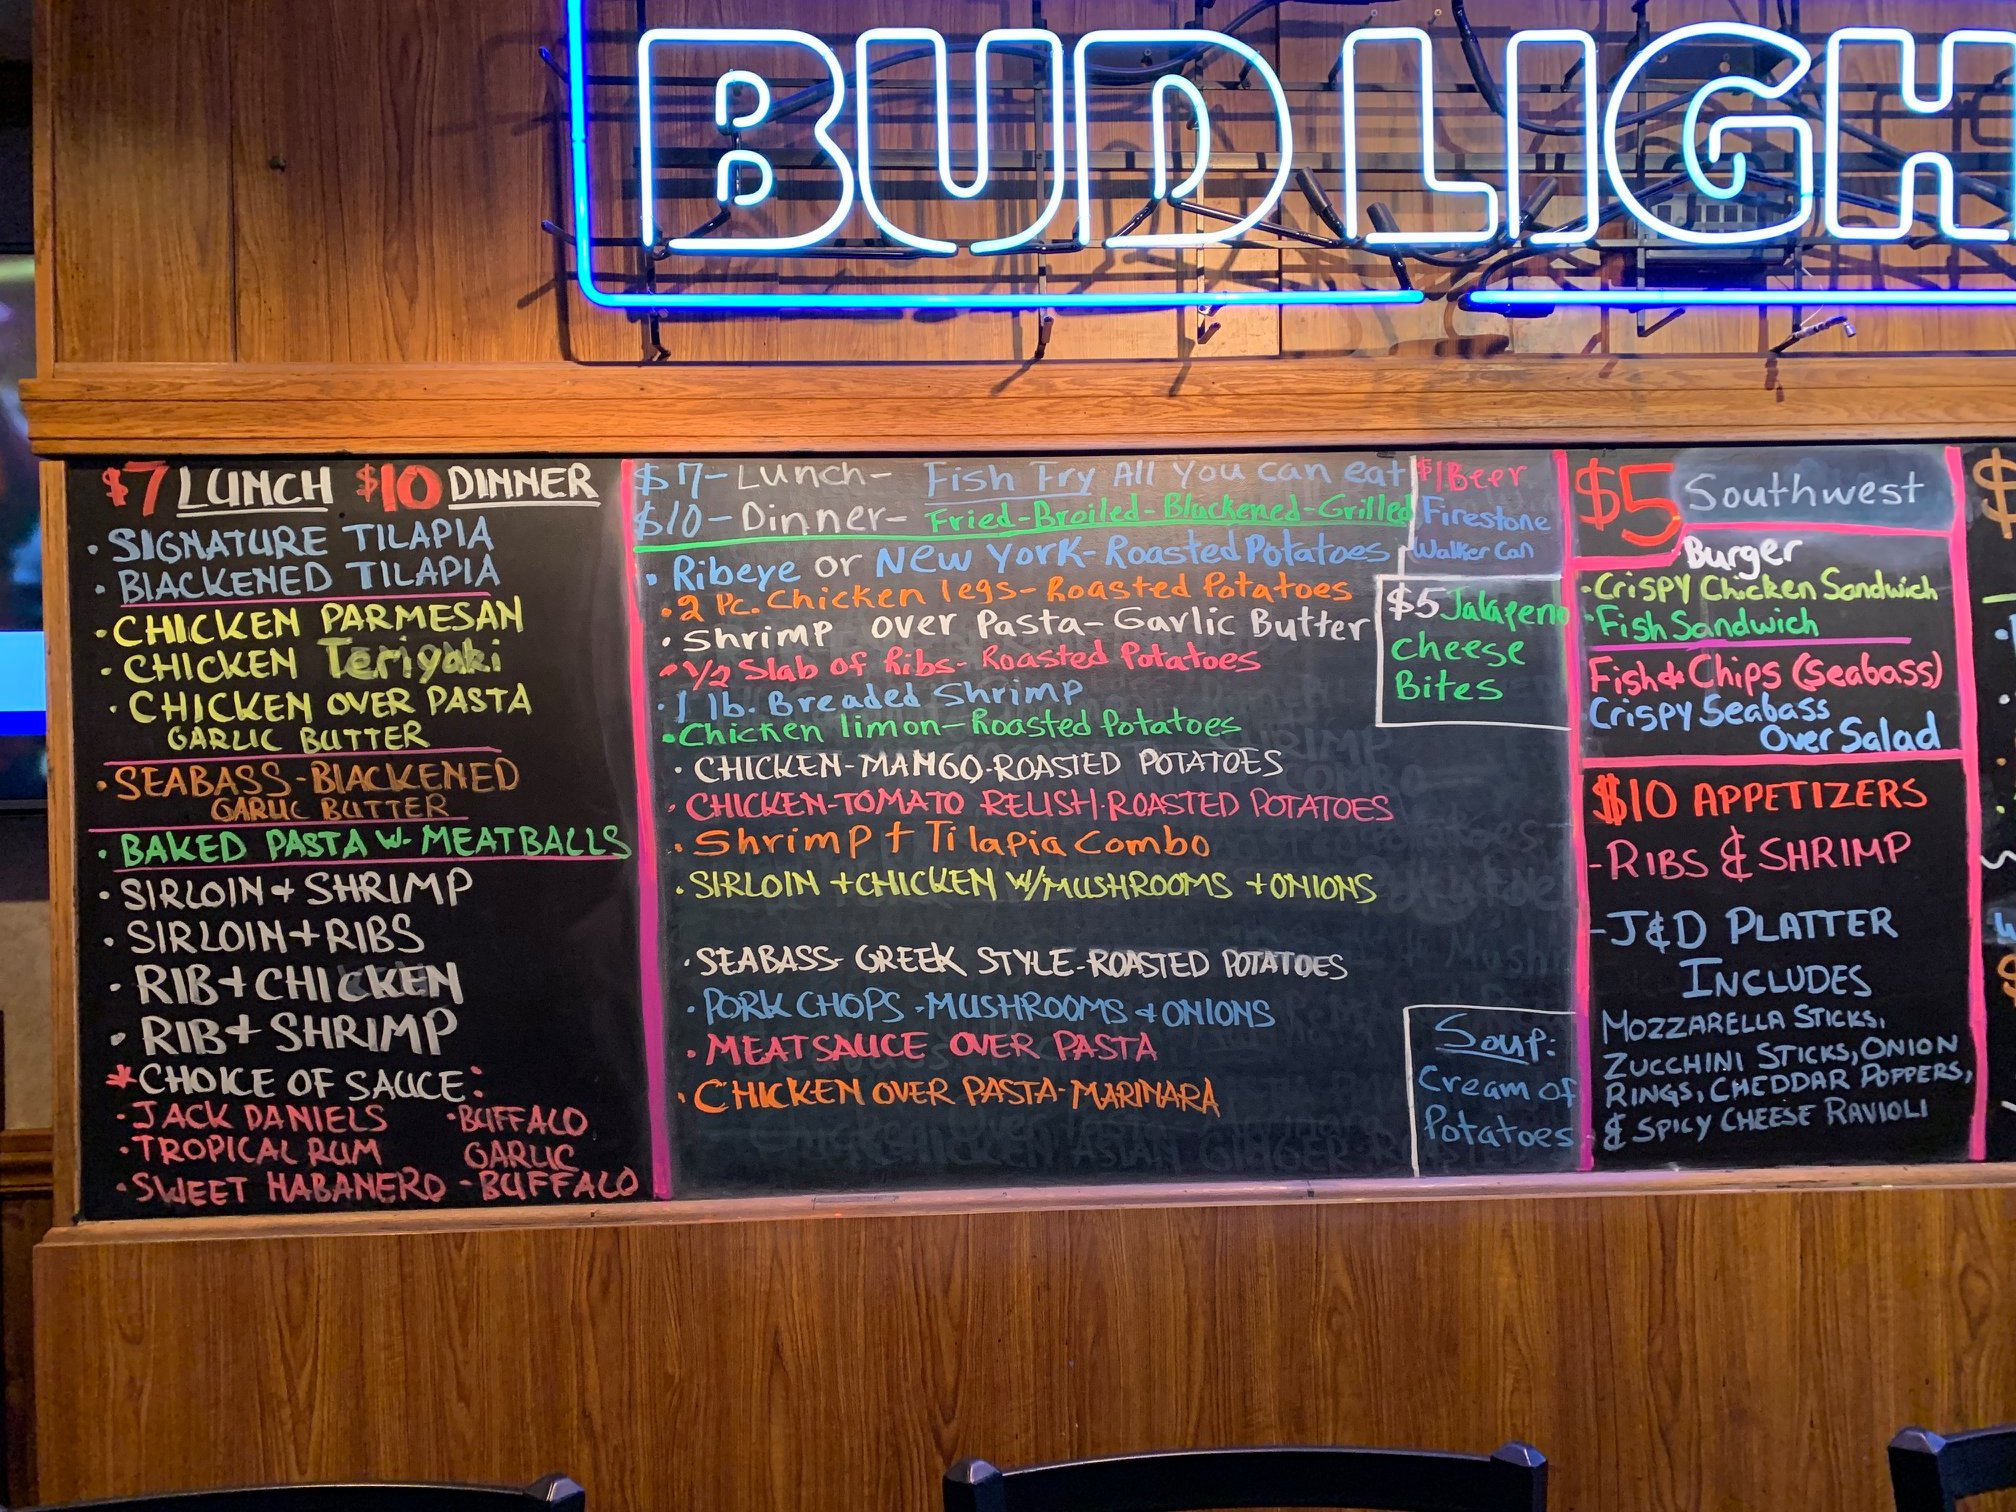 BUD LIGH
$7 LUNCH $10 DINNER
· SIGNATURE TILAPIA
· BLACKENED TILAPIA
· CHICKEN PARMESAN
· CHICKEN Teriyaki
· CHICKEN OVER PASTA
GARLIC BUTTER
· SEABASS-BLACKENED
GARLIC BUTTER
· BAKED PASTA W. MEATBALLS
· SIRLOIN + SHRIMP
· SIRLOIN + RIBS
· RIB + CHICKEN
· RIB + SHRIMP
*CHOICE OF SAUCE:
· JACK DANIELS · BUFFALO
· TROPICAL RUM GARLIC
· SWEET HABANERO - BUFFALO
$7-Lunch- Fish Fry All You can eat
$10-Dinner- Fried-Broiled-Blackened-Grilled
· Ribeye or New York-Roasted Potatoes
· 2 Pc. Chicken legs-Roasted Potatoes
· Shrimp over Pasta-Garlic Butter
· 1/2 Slab of Ribs-Roasted Potatoes
· 1 lb. Breaded Shrimp
· Chicken limon-Roasted Potatoes
· CHICKEN-MANGO-ROASTED POTATOES
· CHICKEN-TOMATO RELISH-ROASTED POTATOES
· Shrimp + Tilapia Combo
· SIRLOIN + CHICKEN W/MUSHROOMS + ONIONS
· SEABASS-GREEK STYLE-ROASTED POTATOES
· PORK CHOPS-MUSHROOMS & ONIONS
· MEATSAUCE OVER PASTA
· CHICKEN OVER PASTA-MARINARA
$1 Beer
Firestone
Walker Can
$5 Jalapeno
Cheese
Bites
Soup:
Cream of
Potatoes
$5 Southwest
Burger
· Crispy Chicken Sandwich
· Fish Sandwich
Fish & Chips (Seabass)
Crispy Seabass
Over Salad
$10 APPETIZERS
- RIBS & SHRIMP
- J&D PLATTER
INCLUDES
MOZZARELLA STICKS,
ZUCCHINI STICKS, ONION
RINGS, CHEDDAR POPPERS,
& SPICY CHEESE RAVIOLI